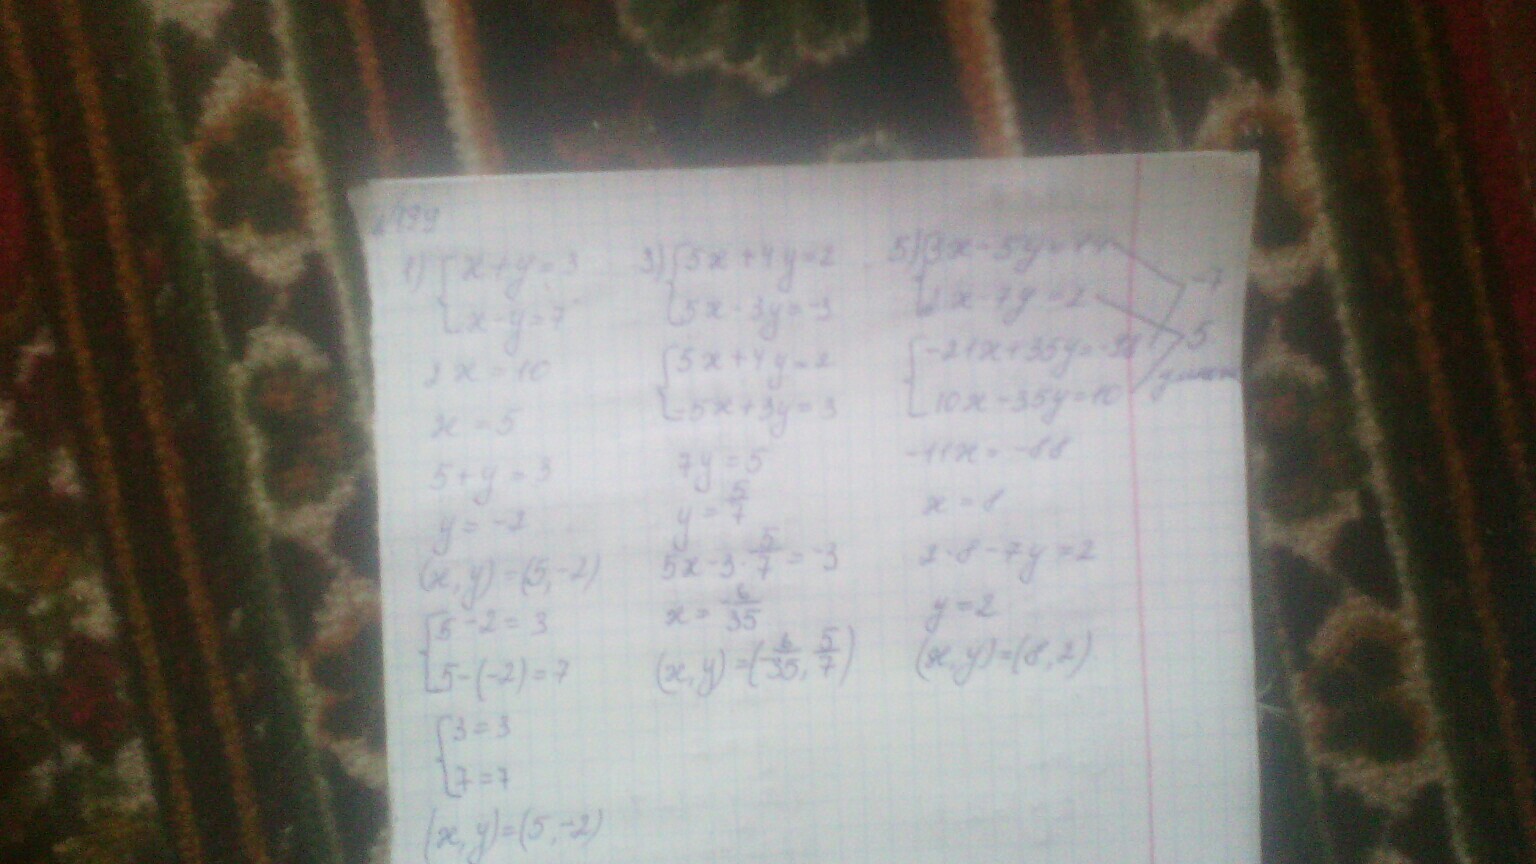 1) { x + y = 3
x - y = 7
2x = 10
x = 5
5 + y = 3
y = -2
(x, y) = (5, -2)
{ 5 - 2 = 3
5 - (-2) = 7
{ 3 = 3
7 = 7
(x, y) = (5, -2)
3) { 5x + 4y = 2
5x - 3y = -3
{ 5x + 4y = 2
-5x + 3y = 3
7y = 5
y = 5/7
5x - 3 · 5/7 = -3
x = -6/35
(x, y) = (-6/35, 5/7)
5) { 3x - 5y = 14
2x - 7y = 2
-7
5
{ -21x + 35y = -98
10x - 35y = 10
-11x = -88
x = 8
2 · 8 - 7y = 2
y = 2
(x, y) = (8, 2)